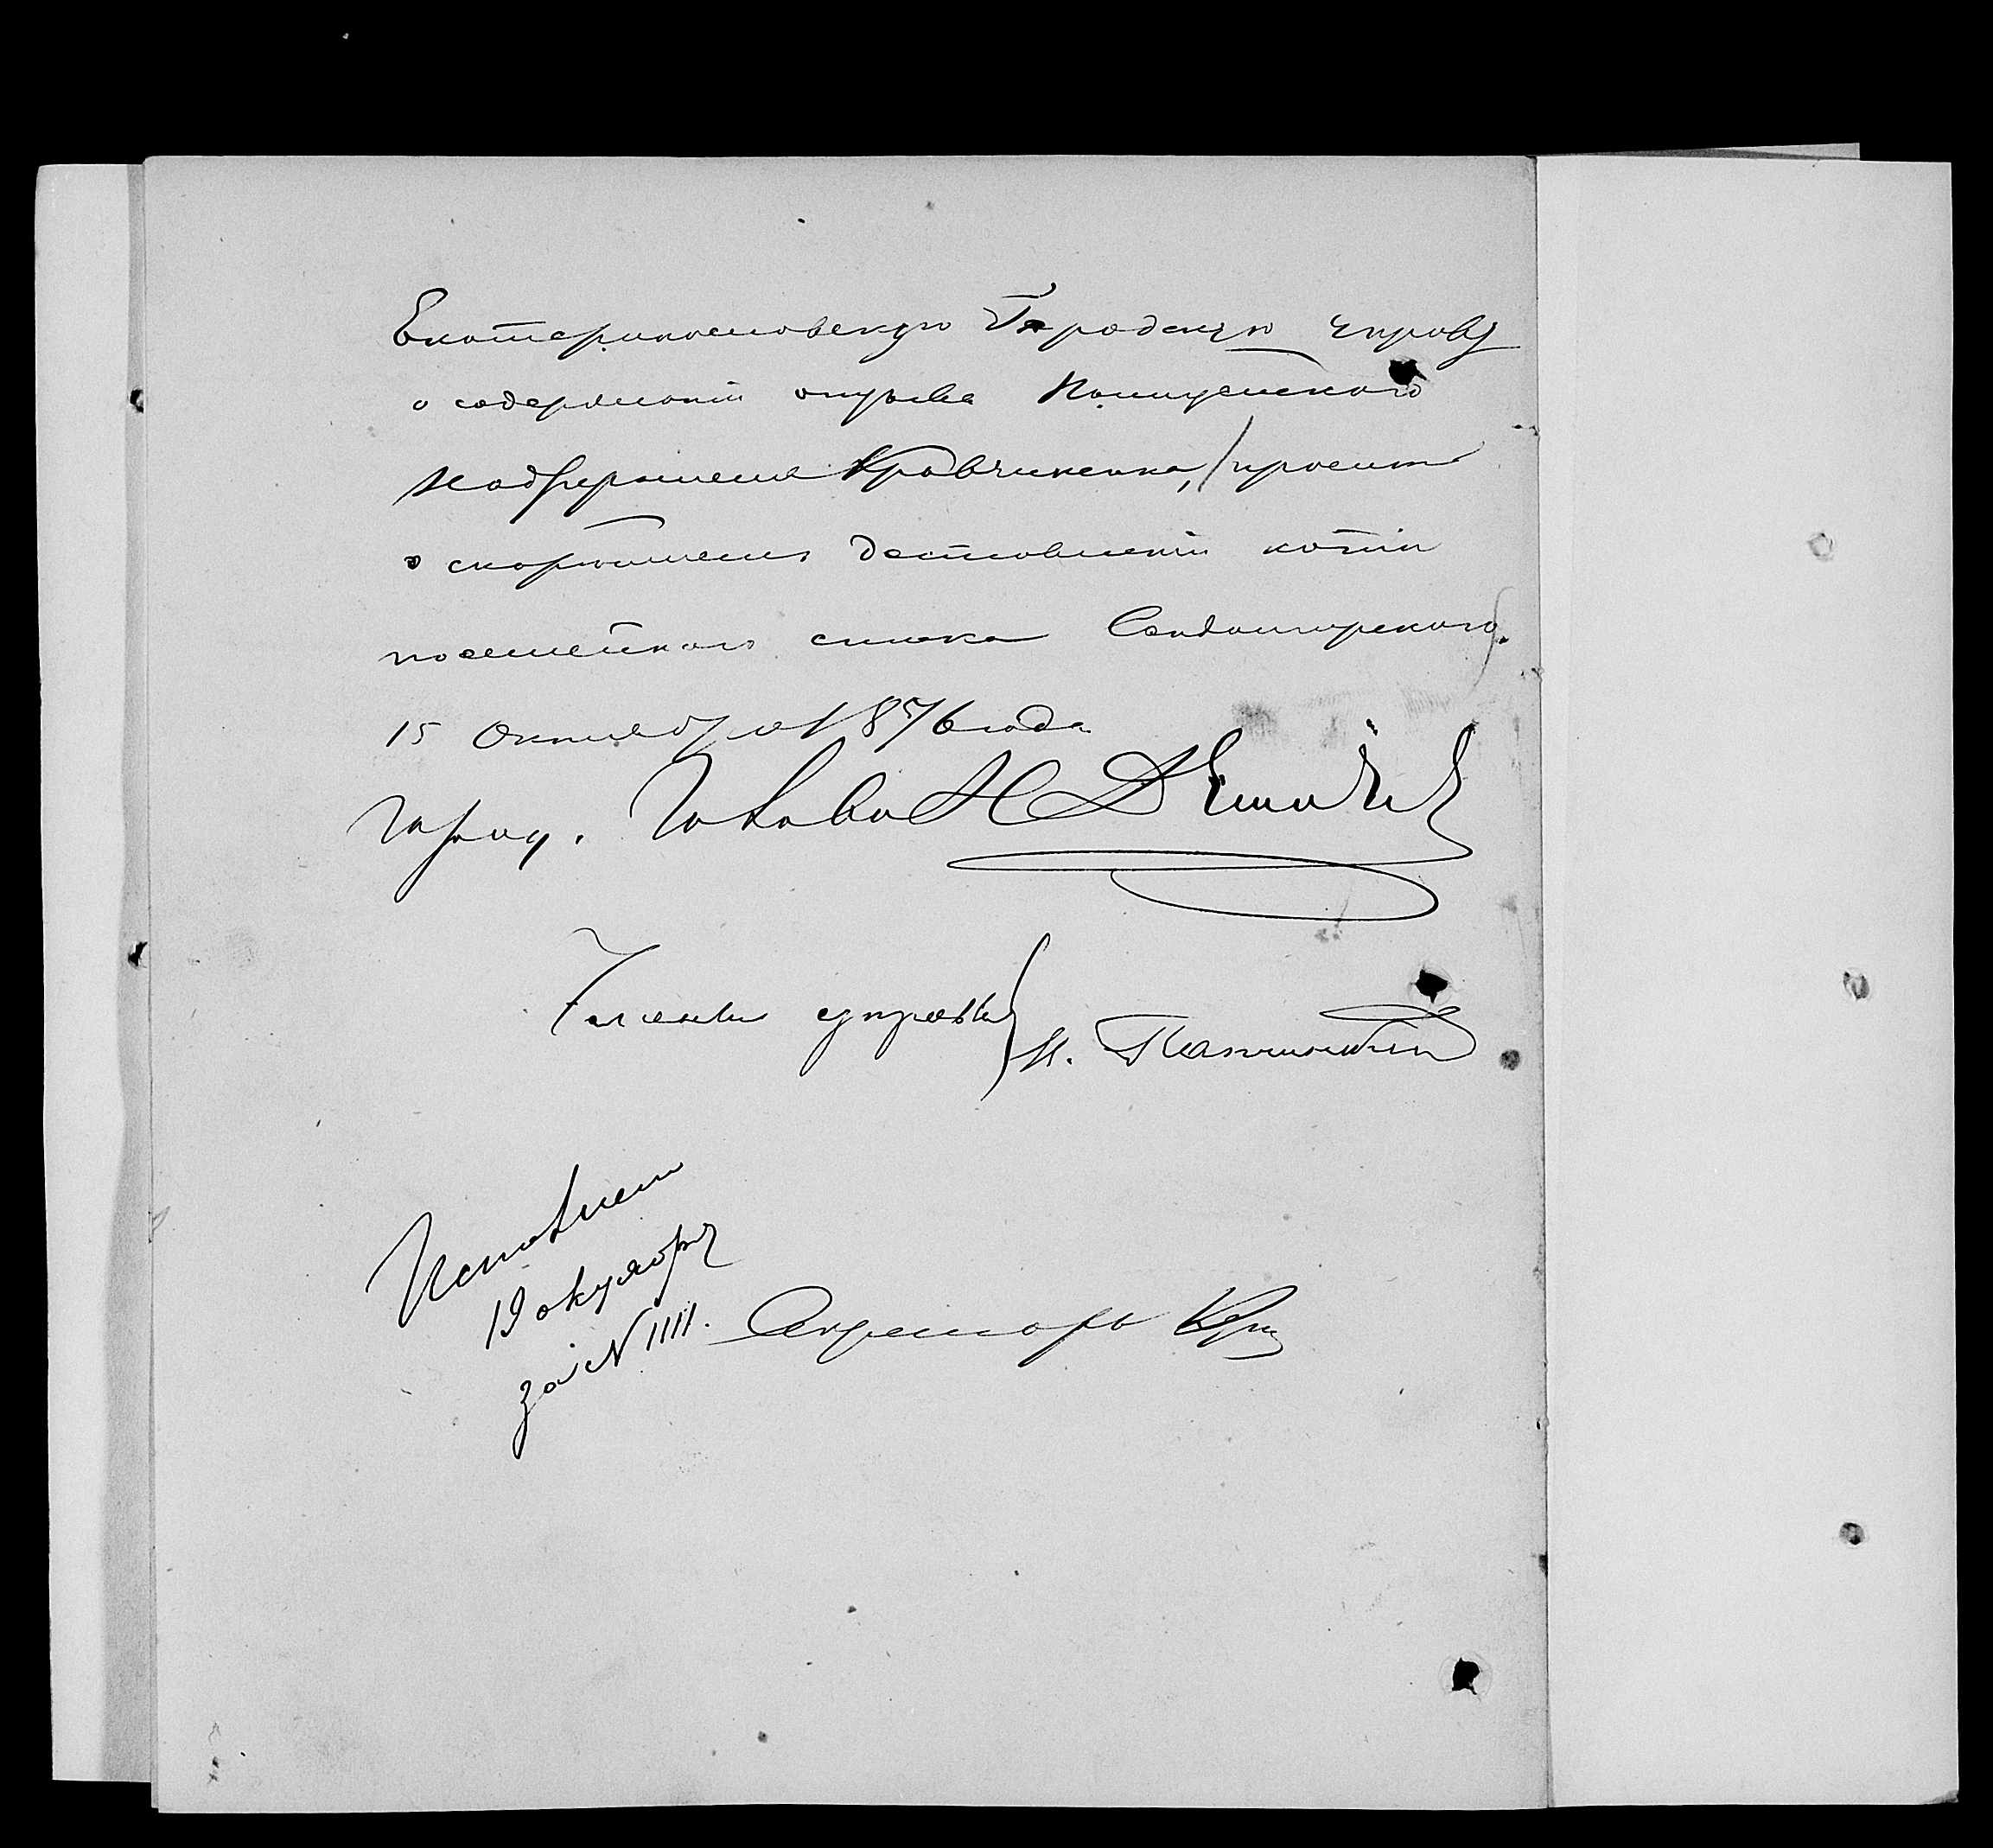 Екатеринославскую Городскую управу
о содержаніи отзыва Полицейскаго
Надзирателя Кравчиненка, / просить
о скорѣйшемъ доставленіи копіи
посемейнаго списка Сандомирскаго.
15 Октября 1876 года
Город. Голова
Члены управы
Исполнен
19 октября
за № 1111. Секретарь